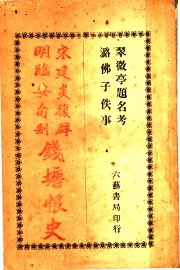 翠微亭題名考
潞佛子佚事
六藝書局印行
宋建炎復辟
明臨安制
錢塘史